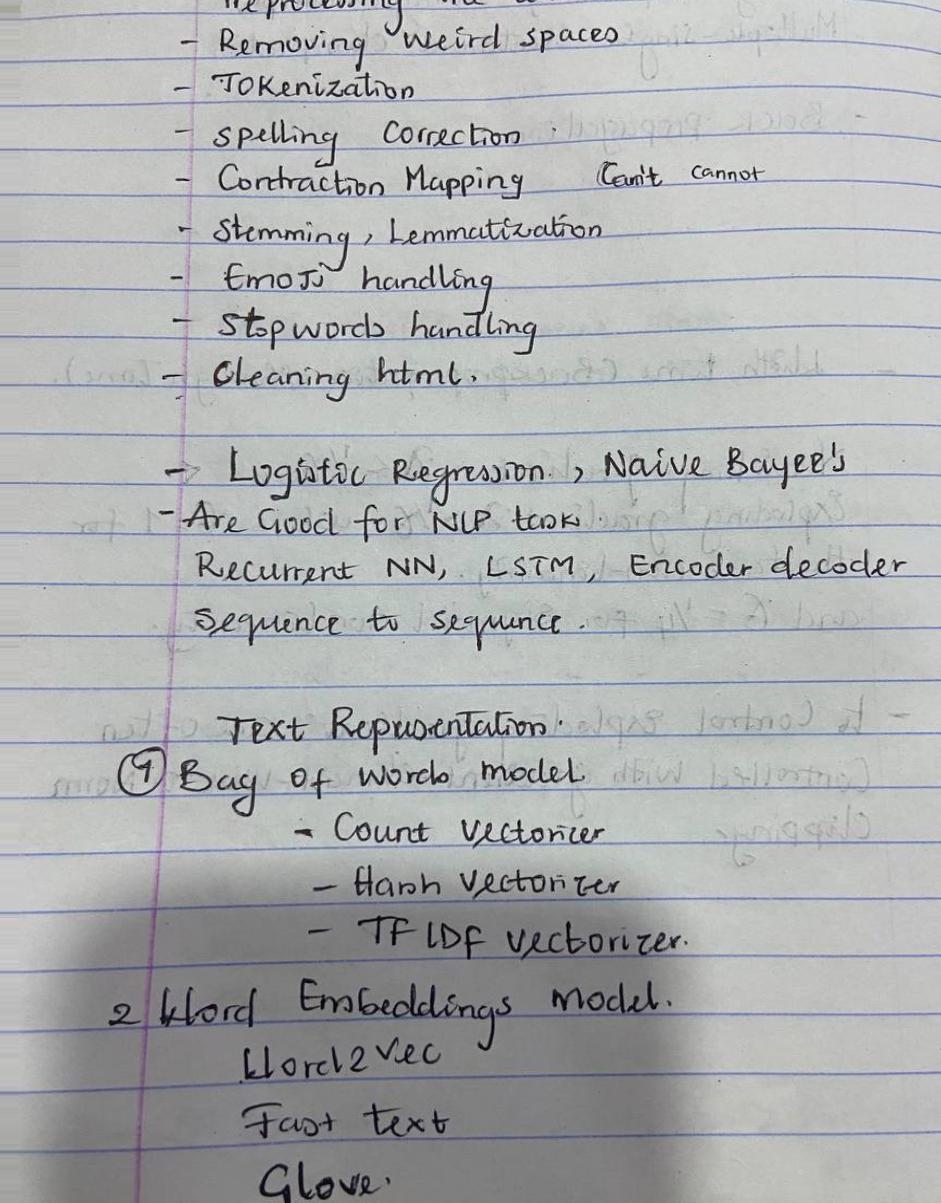 Preprocessing
- Removing weird spaces
- Tokenization
- spelling Correction.
- Contraction Mapping Can't cannot
- Stemming, Lemmatization
- Emoji handling
- Stop words handling
- Cleaning html.
-> Logistic Regression, Naive Bayee's
- Are Good for NLP task.
Recurrent NN, LSTM, Encoder decoder
Sequence to sequence.
Text Representation.
① Bag of words model
- Count Vectorizer
- Hash Vectorizer
- TF IDF vectorizer.
2 Word Embeddings model.
Word2vec
Fast text
Glove.